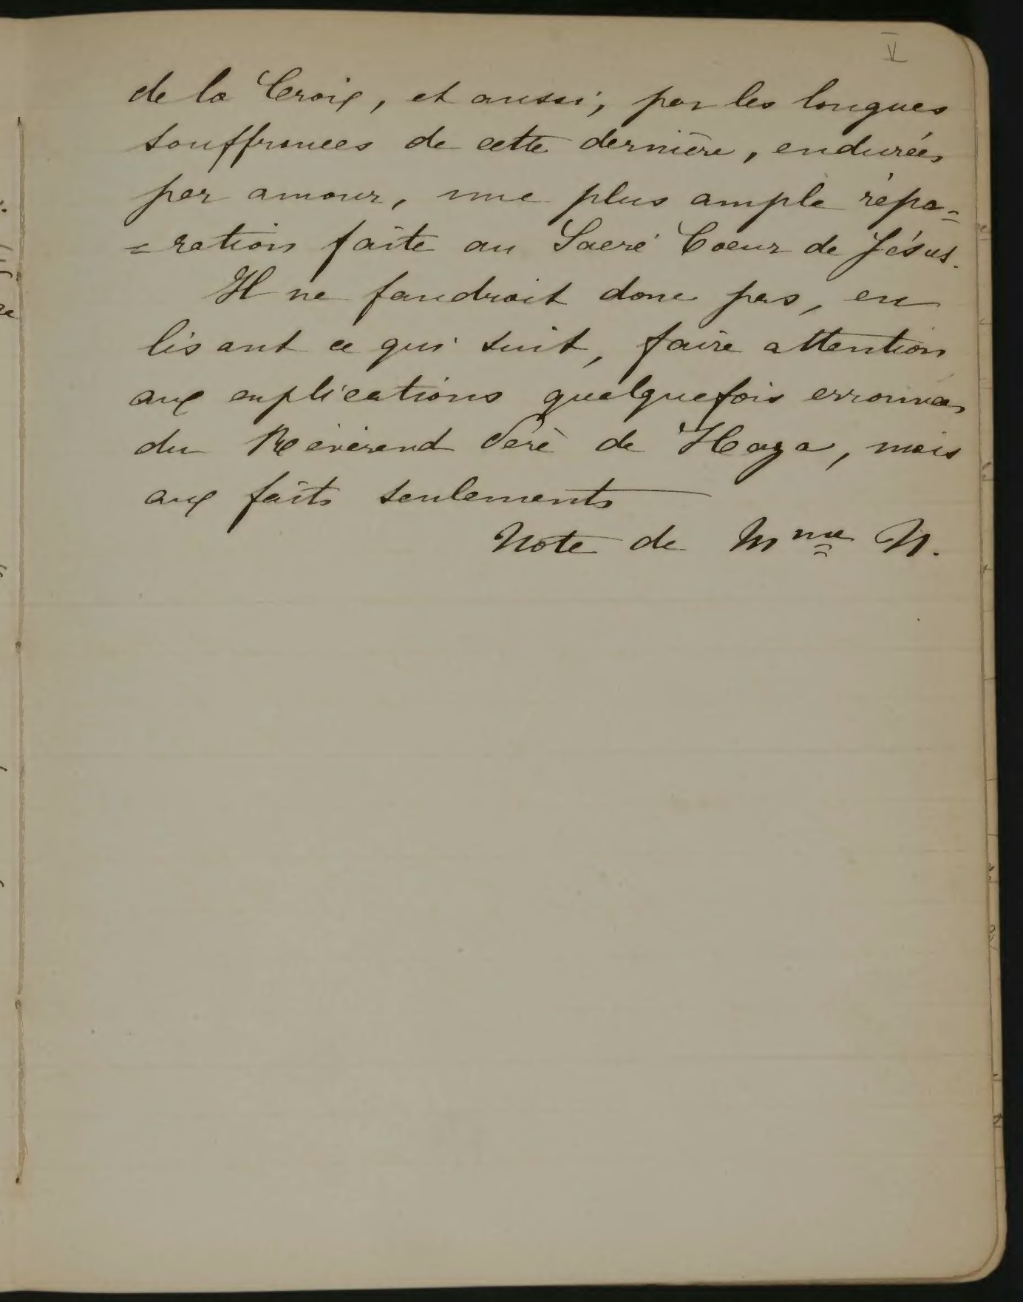 V
de la Croix, et aussi, par les longues
souffrances de cette dernière, endurées
par amour, une plus ample répa=
=ration faite au Sacré Coeur de Jésus.
Il ne faudrait donc pas, en
lisant ce qui suit, faire attention
aux explications quelquefois erronnées
du Révérend Père de Haza, mais
aux faits seulements
Note de Mme N.